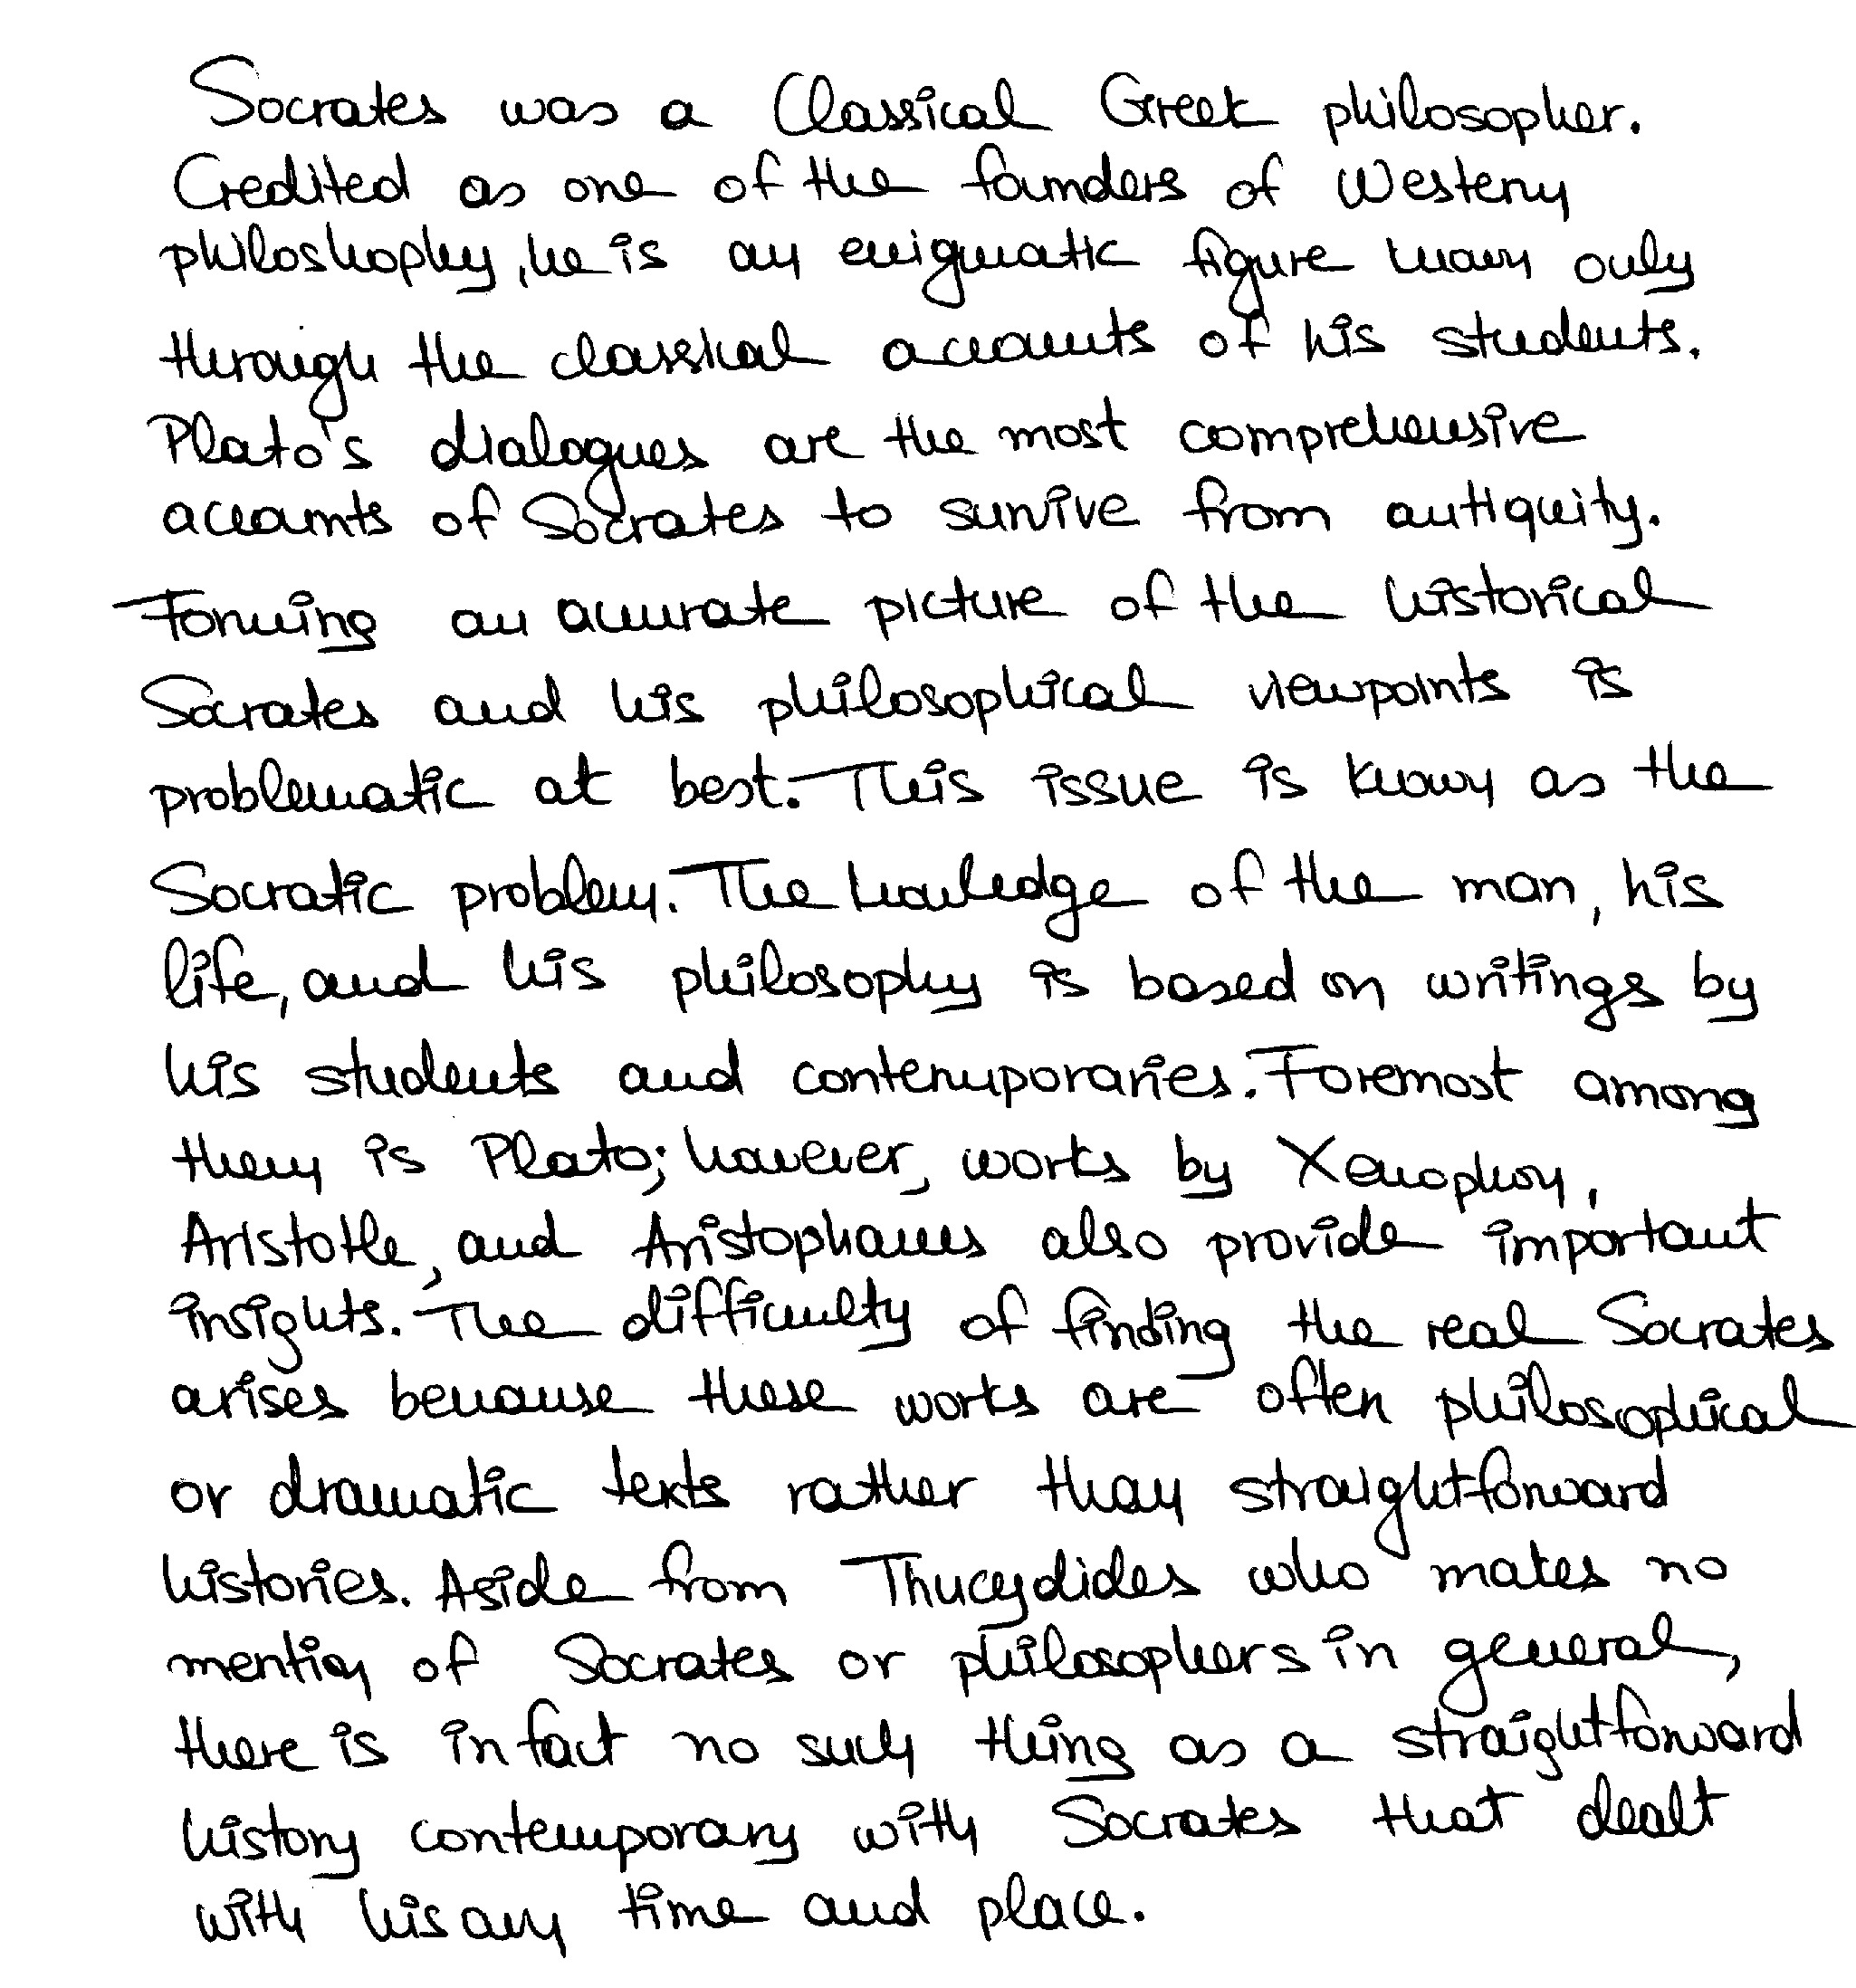 Socrates was a Classical Greek philosopher.
Credited as one of the founders of Western
philoshophy, he is an enigmatic figure known only
through the classical accounts of his students.
Plato's dialogues are the most comprehensive
accounts of Socrates to survive from antiquity.
Forming an accurate picture of the historical
Socrates and his philosophical viewpoints is
problematic at best. This issue is known as the
Socratic problem. The knowledge of the man, his
life, and his philosophy is based on writings by
his students and contemporaries. Foremost among
them is Plato; however, works by Xenophon,
Aristotle, and Aristophanes also provide important
insights. The difficulty of finding the real Socrates
arises because these works are often philosophical
or dramatic texts rather than straightforward
histories. Aside from Thucydides who makes no
mention of Socrates or philosophers in general,
there is in fact no such thing as a straightforward
history contemporary with Socrates that dealt
with his own time and place.